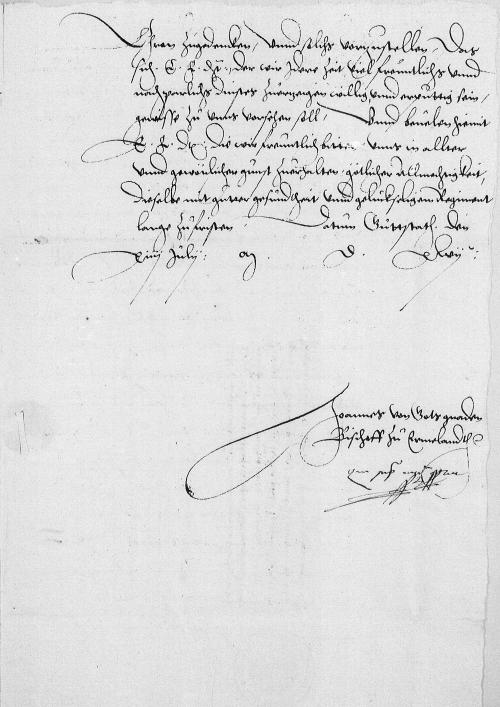 Ihran zugedencken, Vnnd solchs vorzustellen, Das
sich E. F. D., der wir Idere Zeit viel freuntlichs vnnd
nachparlichs dinstes zuerzeigen willig vnnd erputtig sein,
gewisse zu vnns vorsehen soll, Vnnd beuelen hiemit
E. F. D., Die wir freuntlich bitten vnns in allter
vnnd gewonlicher gunst zuerhalten, gotlicher Allmechtigkeit,
Dieselbe mit guter gesundtheit vnnd geluckseligem Regiment
lange zufristen. Datum Guttstath den
Xiiij Julij M D Xlvij
Joannes von Gots gnaden
Bischoff zu Ermelandth